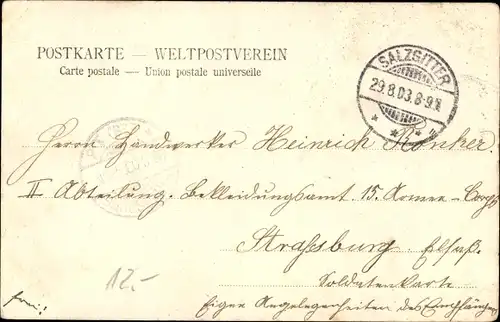 POSTKARTE — WELTPOSTVEREIN
Carte postale — Union postale universelle
SALZGITTER
29.8.03.8-9V.
Herrn Handwerker Heinrich
II Abteilung. Bekleidungsamt 15. Armee-Corps
Strassburg. Elsaß.
Soldatenkarte
12.-
frei!
Eigne Angelegenheiten des Empfängers